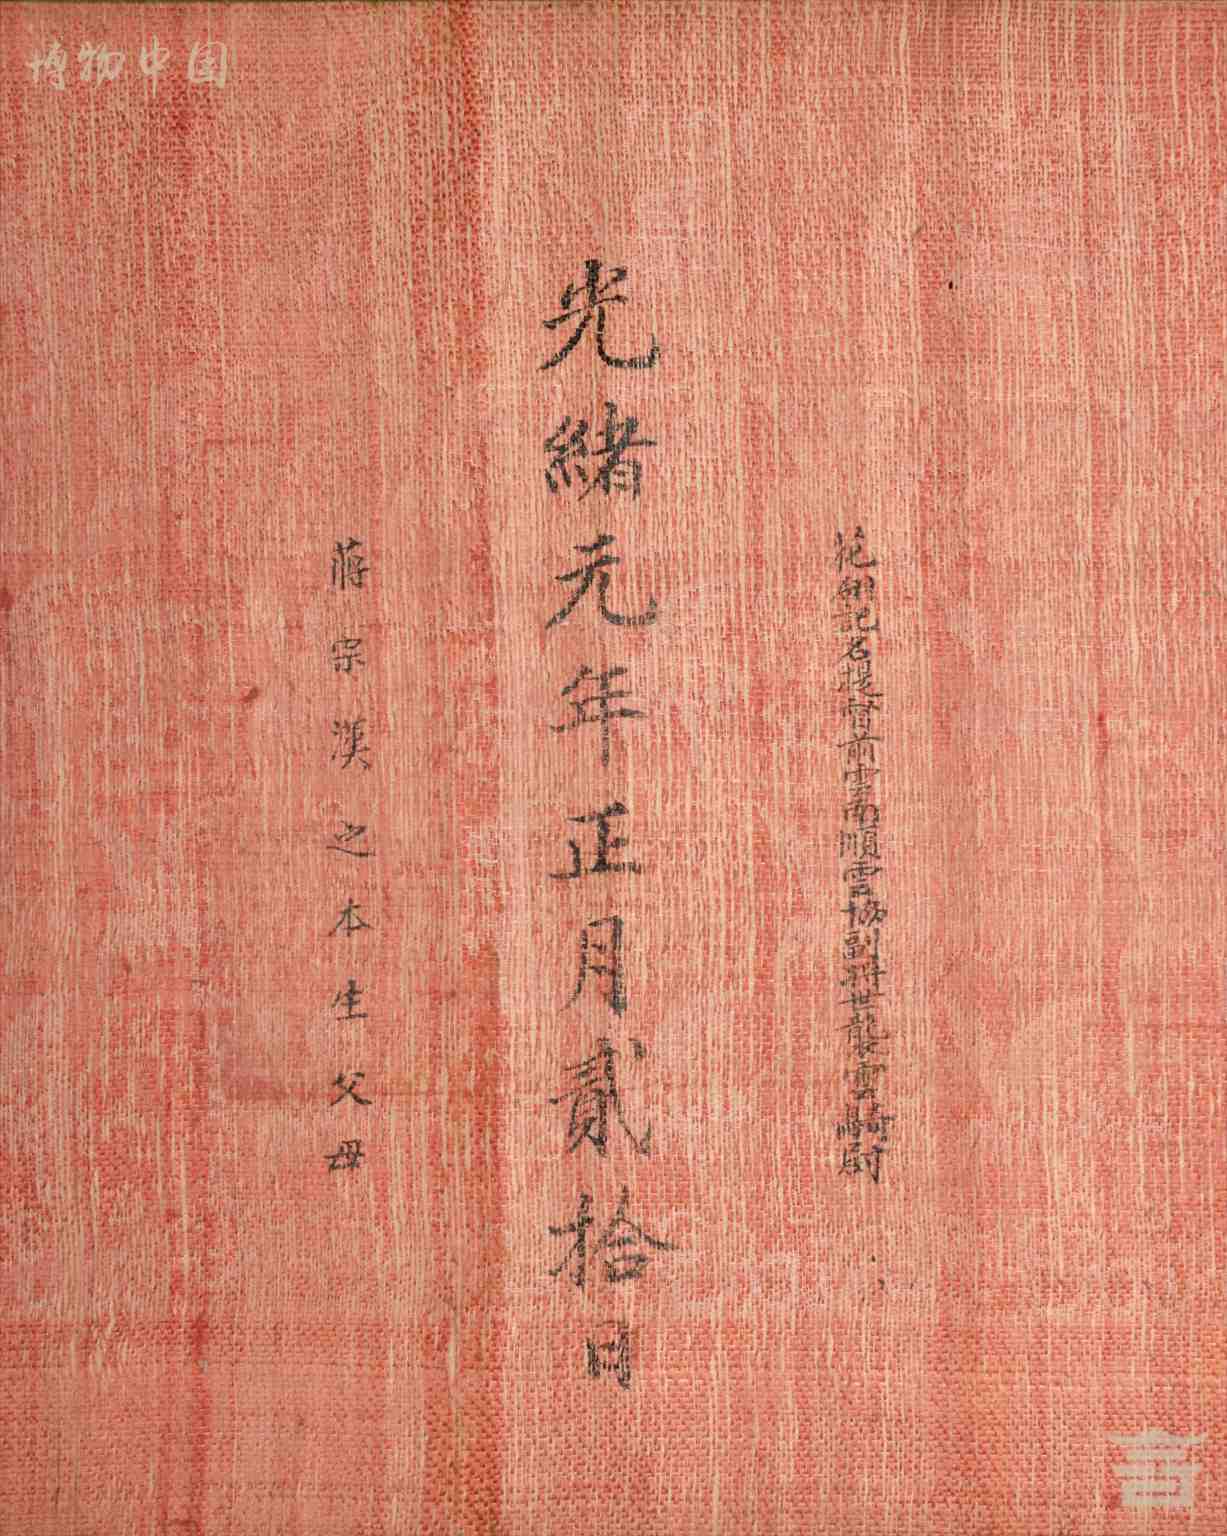 博物中国
花翎記名提督前雲南順雲協副將世襲雲騎尉
光緒元年正月貳拾日
蔣宗漢之本生父母